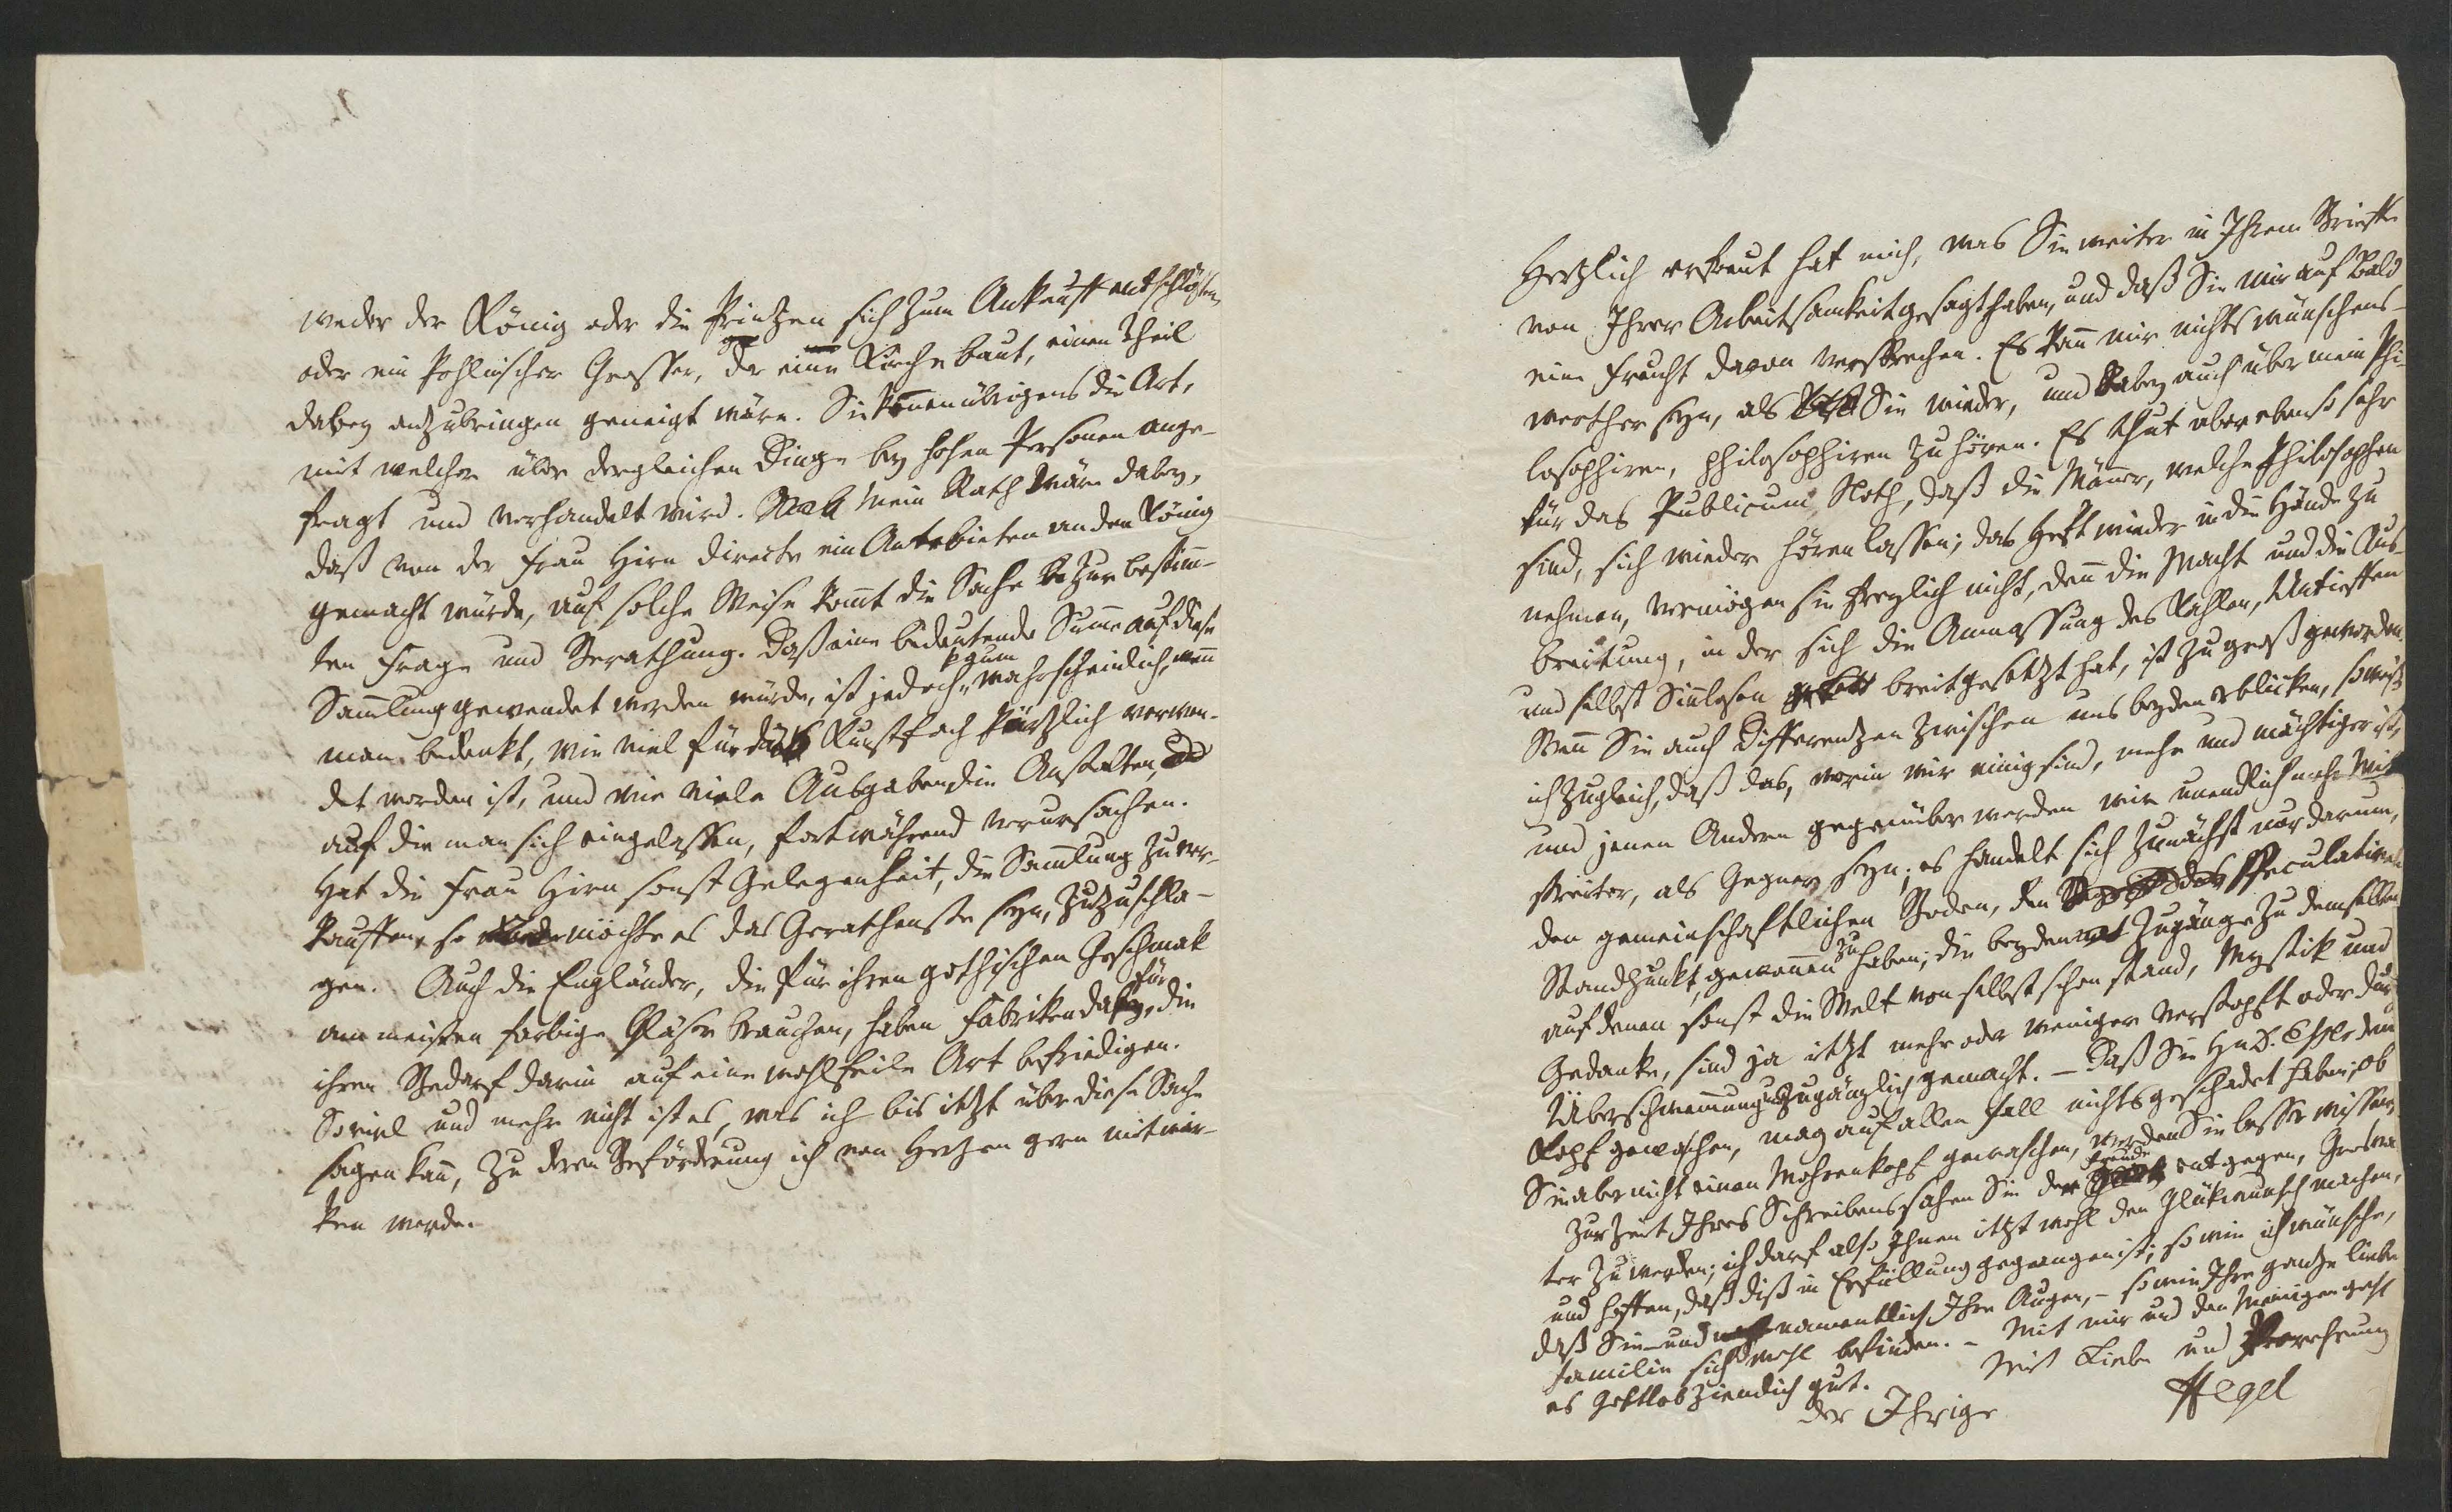 weder der König oder die Printzen sich zum Ankauff entschlößen,
oder ein Pohlnischer Grosser, der eine Kirche baut, einen Theil
dabey anzubringen geneigt wäre. Sie kennen übrigens die Art,
mit welcher über dergleichen Dinge bey hohen Personen ange-
fragt und verhandelt wird. Mein Rath wäre dabey,
daß von der Frau Hirn directe ein Anerbieten an den König
gemacht würde, auf solche Weise komt die Sache zur bestim-
ten Frage und Berathung. Daß eine bedeutende Summe auf diese
Samlung gewendet werden würde, ist jedoch kaum wahrscheinlich, wenn
man bedenkt, wie viel für das Kunstfach kürzlich verwen-
det worden ist, und wie viele Ausgaben die Anstalten,
auf die man sich eingelassen, fortwährend verursachen.
Hat die Frau Hirn sonst Gelegenheit, die Samlung zu ver-
kauffen, so möchte es das Gerathenste seyn, zuzuschla-
gen. Auch die Engländer, die für ihren gothischen Geschmak
am meisten farbige Gläser brauchen, haben Fabriken dafür, die
ihren Bedarf darin auf eine wohlfeile Art befriedigen.
Soviel und mehr nicht ist es, was ich bis itzt über diese Sache
sagen kann, zu deren Beförderung ich von Hertzen gern mitwir-
ken werde.
Hertzlich erfreut hat mich, was Sie weiter in Ihrem Brieffe
von Ihrer Arbeitsamkeit gesagt haben, und daß Sie mir auf Bald
eine Frucht davon versprechen. Es kann mir nichts wünschens-
werther seyn, als Sie wieder, und dabey auch über mein Phi-
losophiren, philosophiren zu hören. Es thut aber ebenso sehr
für das Publicum Noth, daß die Männer, welche Philosophen
sind, sich wieder hören lassen; das Heft wieder in die Hände zu
nehmen, vermögen sie freylich nicht, denn die Macht und die Aus-
breitung, in der sich die Anmassung des Kahlen, Untieffen
und selbst Sinnlosen breit gesetzt hat, ist zu groß geworden.
Wenn Sie auch Differentzen zwischen uns beyden erblicken, so weiß
ich zugleich, daß das, worin wir einig sind, mehr und mächtiger ist,
und jenen Andern gegenüber werden wir unendlich mehr Mit-
streiter, als Gegner seyn; es handelt sich zunächst nur darum,
den gemeinschaftlichen Boden, den speculativen
Standpunkt, gewonnen zu haben; die beyden Zugänge zu demselben
auf denen sonst die Welt von selbst schon stand, Mystik und
Gedanke, sind ja itzt mehr oder weniger verstopft oder durch
Überschwemmung unzugänglich gemacht. – Daß Sie Hn D. den
Kopf gewaschen, mag auf allen Fall nichts geschadet haben; ob
Sie aber nicht einen Mohrenkopf gewaschen, werden Sie besser wissen.
Zur Zeit Ihres Schreibens sahen Sie der Freude entgegen, Grosva-
ter zu werden; ich darf also Ihnen itzt wohl den Glükwunsch machen,
und hoffen, daß diß in Erfüllung gegangen ist; so wie ich wünsche,
daß Sie – und namentlich Ihre Augen, – so wie Ihre gantze liebe
Familie sich wohl befinden. – Mit mir und den Meinigen geht
es Gottlob ziemlich gut. Mit Liebe und Verehrung
der Ihrige
Hegel